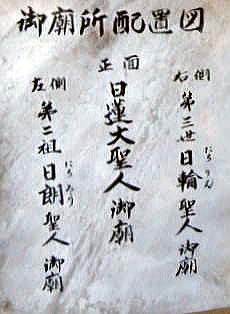 御廟所配置図
右側
第三世日輪聖人御廟
にち りん
正面
日蓮大聖人御廟
左側
第二祖日朗聖人御廟
にち ろう